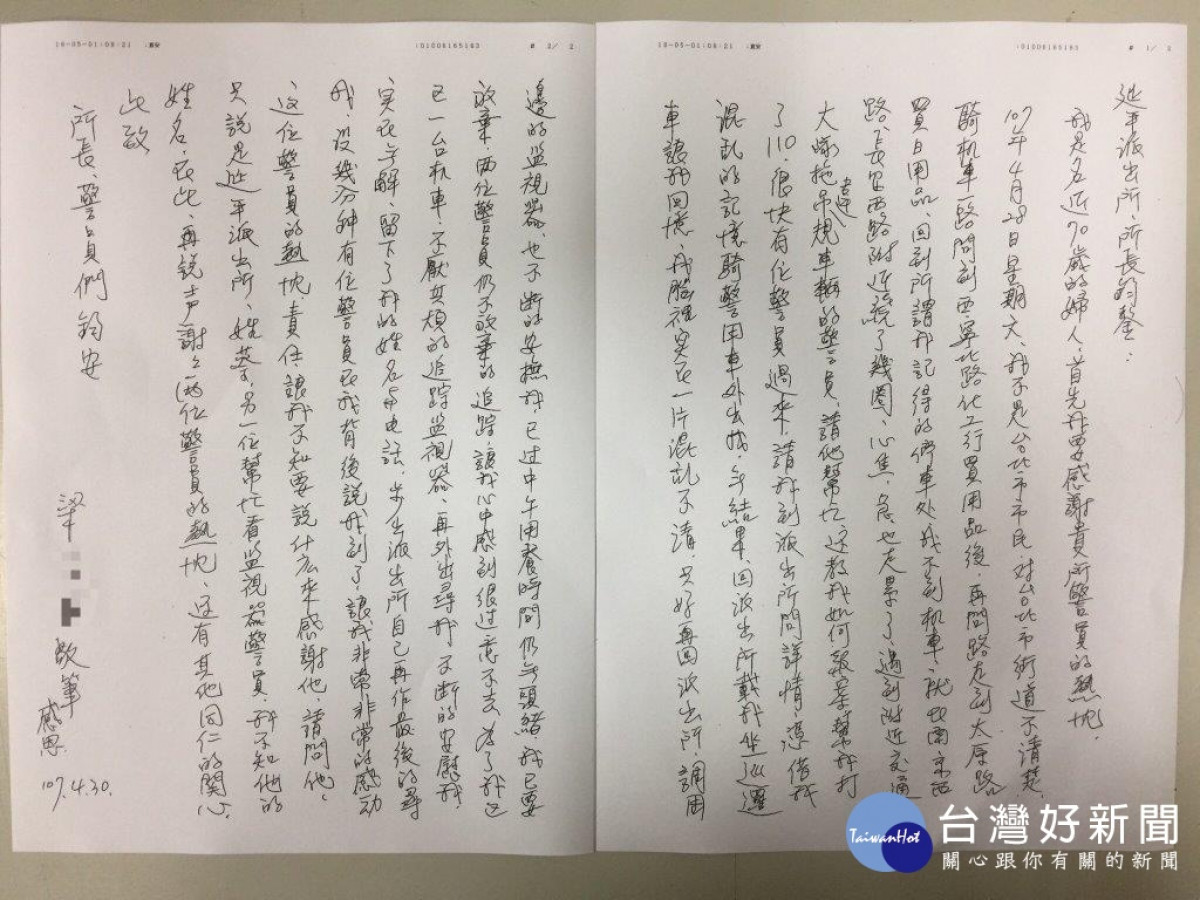 18-05-01;09:21 ;新安 ;01006165163 # 1/ 2
延平派出所、所長鈞鑒:
我是名近70歲的婦人、首先我要感謝貴所警員的熱忱、
107年4月28日星期六、我不是台北市市民、对台北市街道不清楚、
騎机車一路問到西寧北路化工行買用品後、再問路走到太原路
買日用品、回到所謂我記得的停車处、找不到机車、就在南京西
路、長安西路附近繞了幾圈、心焦、急、也走累了、遇到附近交通
大隊拖吊違規車輛的警員、請他幫忙、这教我如何報案幫我打
了110、很快有位警員過來、請我到派出所問詳情、憑借我
混乱的記憶騎警用車外出找、无結果、回派出所載我坐巡邏
車讓我回憶、我腦裡実在一片混乱不清、只好再回派出所、調用
18-05-01;09:21 ;新安 ;01006165163 # 2/ 2
邊的监視器、也不斷的安撫我、已过中午用餐時間仍无頭緒、我已要
放棄、兩位警員仍不放棄的追踪、讓我心中感到很过意不去、為了我这
区一台机車、不厭其煩的追踪监視器、再外出尋找、不斷的安慰我
実在无解、留下了我的姓名与电話、步出派出所自己再作最後的尋
找、没幾分钟有位警員在我背後説找到了、讓我非常非常的感动
这位警員的熱忱責任、讓我不知要説什么來感謝他、請問他、
只說是延平派出所、姓蔡、另一位幫忙看监視器警員、我不知他的
姓名、在此、再說声謝々兩位警員的熱忱、还有其他同仁的関心
此致
所長、警員們 鈞安
梁 敬筆
感恩
107.4.30.
TaiwanHot 台灣好新聞
關心跟你有關的新聞